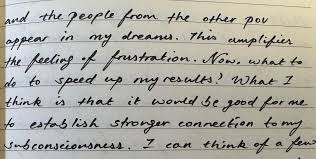 and the people from the other pov
appear in my dreams. This amplifies
the feeling of frustration. Now, what to
do to speed up my results? What I
think is that it would be good for me
to establish stronger connection to my
subconsciousness. I can think of a few